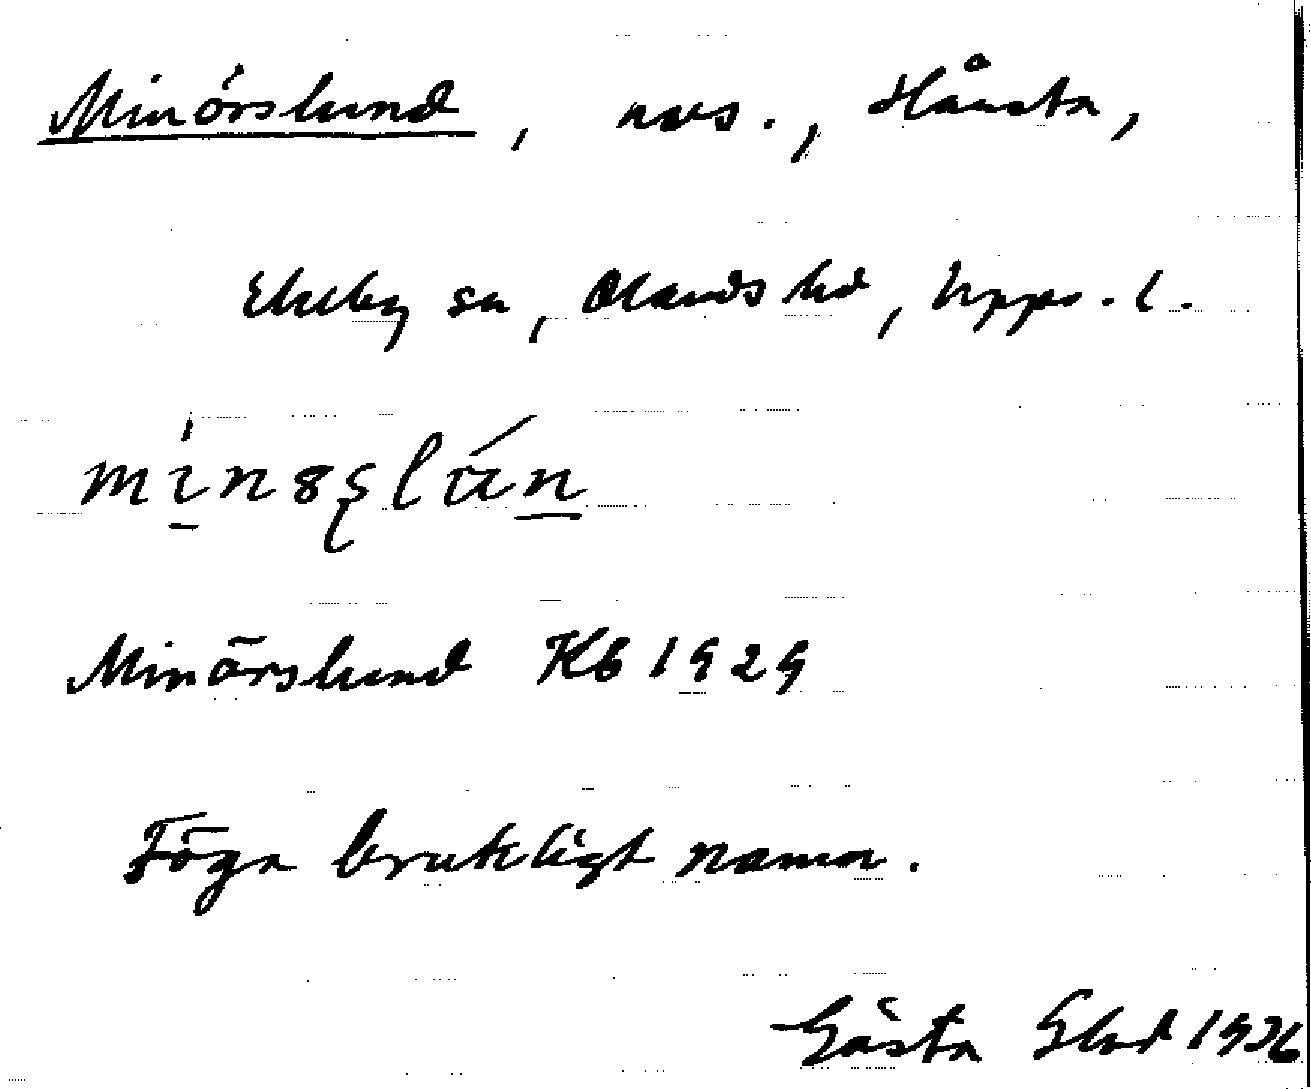 Minörslund, avs., Hånsta,
Ekeby sn, Olands hd, Upps. l.
Minörslund Kb 1929
Föga brukligt namn.
Gösta Glad 1936